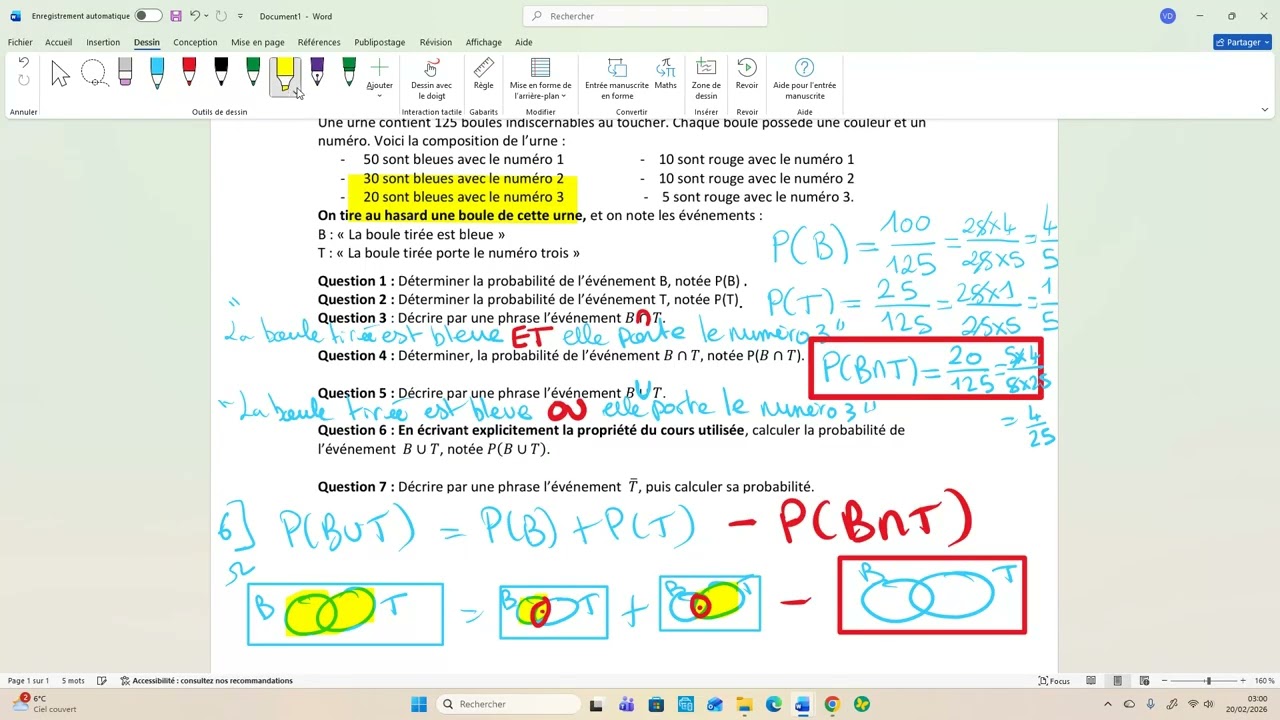 Enregistrement automatique Document1 - Word Rechercher VD
Fichier Accueil Insertion Dessin Conception Mise en page Références Publipostage Révision Affichage Aide Partager
Ajouter Dessin avec le doigt Règle Mise en forme de l'arrière-plan Entrée manuscrite en forme Maths Zone de dessin Revoir Aide pour l'entrée manuscrite
Annuler Outils de dessin Interaction tactile Gabarits Modifier Convertir Insérer Revoir Aide
Une urne contient 125 boules indiscernables au toucher. Chaque boule possède une couleur et un
numéro. Voici la composition de l'urne :
- 50 sont bleues avec le numéro 1 - 10 sont rouge avec le numéro 1
- 30 sont bleues avec le numéro 2 - 10 sont rouge avec le numéro 2
- 20 sont bleues avec le numéro 3 - 5 sont rouge avec le numéro 3.
On tire au hasard une boule de cette urne, et on note les événements :
B : « La boule tirée est bleue »
T : « La boule tirée porte le numéro trois »
P(B) = 100/125 = 25×4/25×5 = 4/5
Question 1 : Déterminer la probabilité de l'événement B, notée P(B) .
Question 2 : Déterminer la probabilité de l'événement T, notée P(T).
P(T) = 25/125 = 25×1/25×5 = 1/5
Question 3 : Décrire par une phrase l'événement B∩T.
" La boule tirée est bleue ET elle porte le numéro 3 "
Question 4 : Déterminer, la probabilité de l'événement B ∩ T, notée P(B ∩ T).
P(B∩T) = 20/125 = 5×4/5×25
= 4/25
Question 5 : Décrire par une phrase l'événement B ∪ T.
" La boule tirée est bleue OU elle porte le numéro 3 "
Question 6 : En écrivant explicitement la propriété du cours utilisée, calculer la probabilité de
l'événement B ∪ T, notée P(B ∪ T).
Question 7 : Décrire par une phrase l'événement T̅, puis calculer sa probabilité.
6] P(B∪T) = P(B) + P(T) - P(B∩T)
Ω
B T = B T + B T - B T
Page 1 sur 1 5 mots Accessibilité : consultez nos recommandations Focus 160 %
2 6°C
Ciel couvert
Rechercher
03:00
20/02/2026